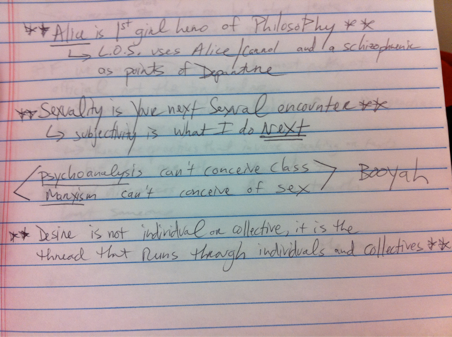 ** Alice is 1st girl hero of Philosophy **
↳ L.O.S. uses Alice/Carroll and a schizophrenic
as points of Departure
** Sexuality is your next sexual encounter **
↳ subjectivity is what I do Next
< Psychoanalysis can't conceive class > Booyah
Marxism can't conceive of sex
** Desire is not individual or collective, it is the
thread that runs through individuals and collectives **